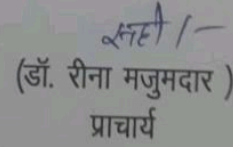 सही/-
(डॉ. रीना मजुमदार )
प्राचार्य